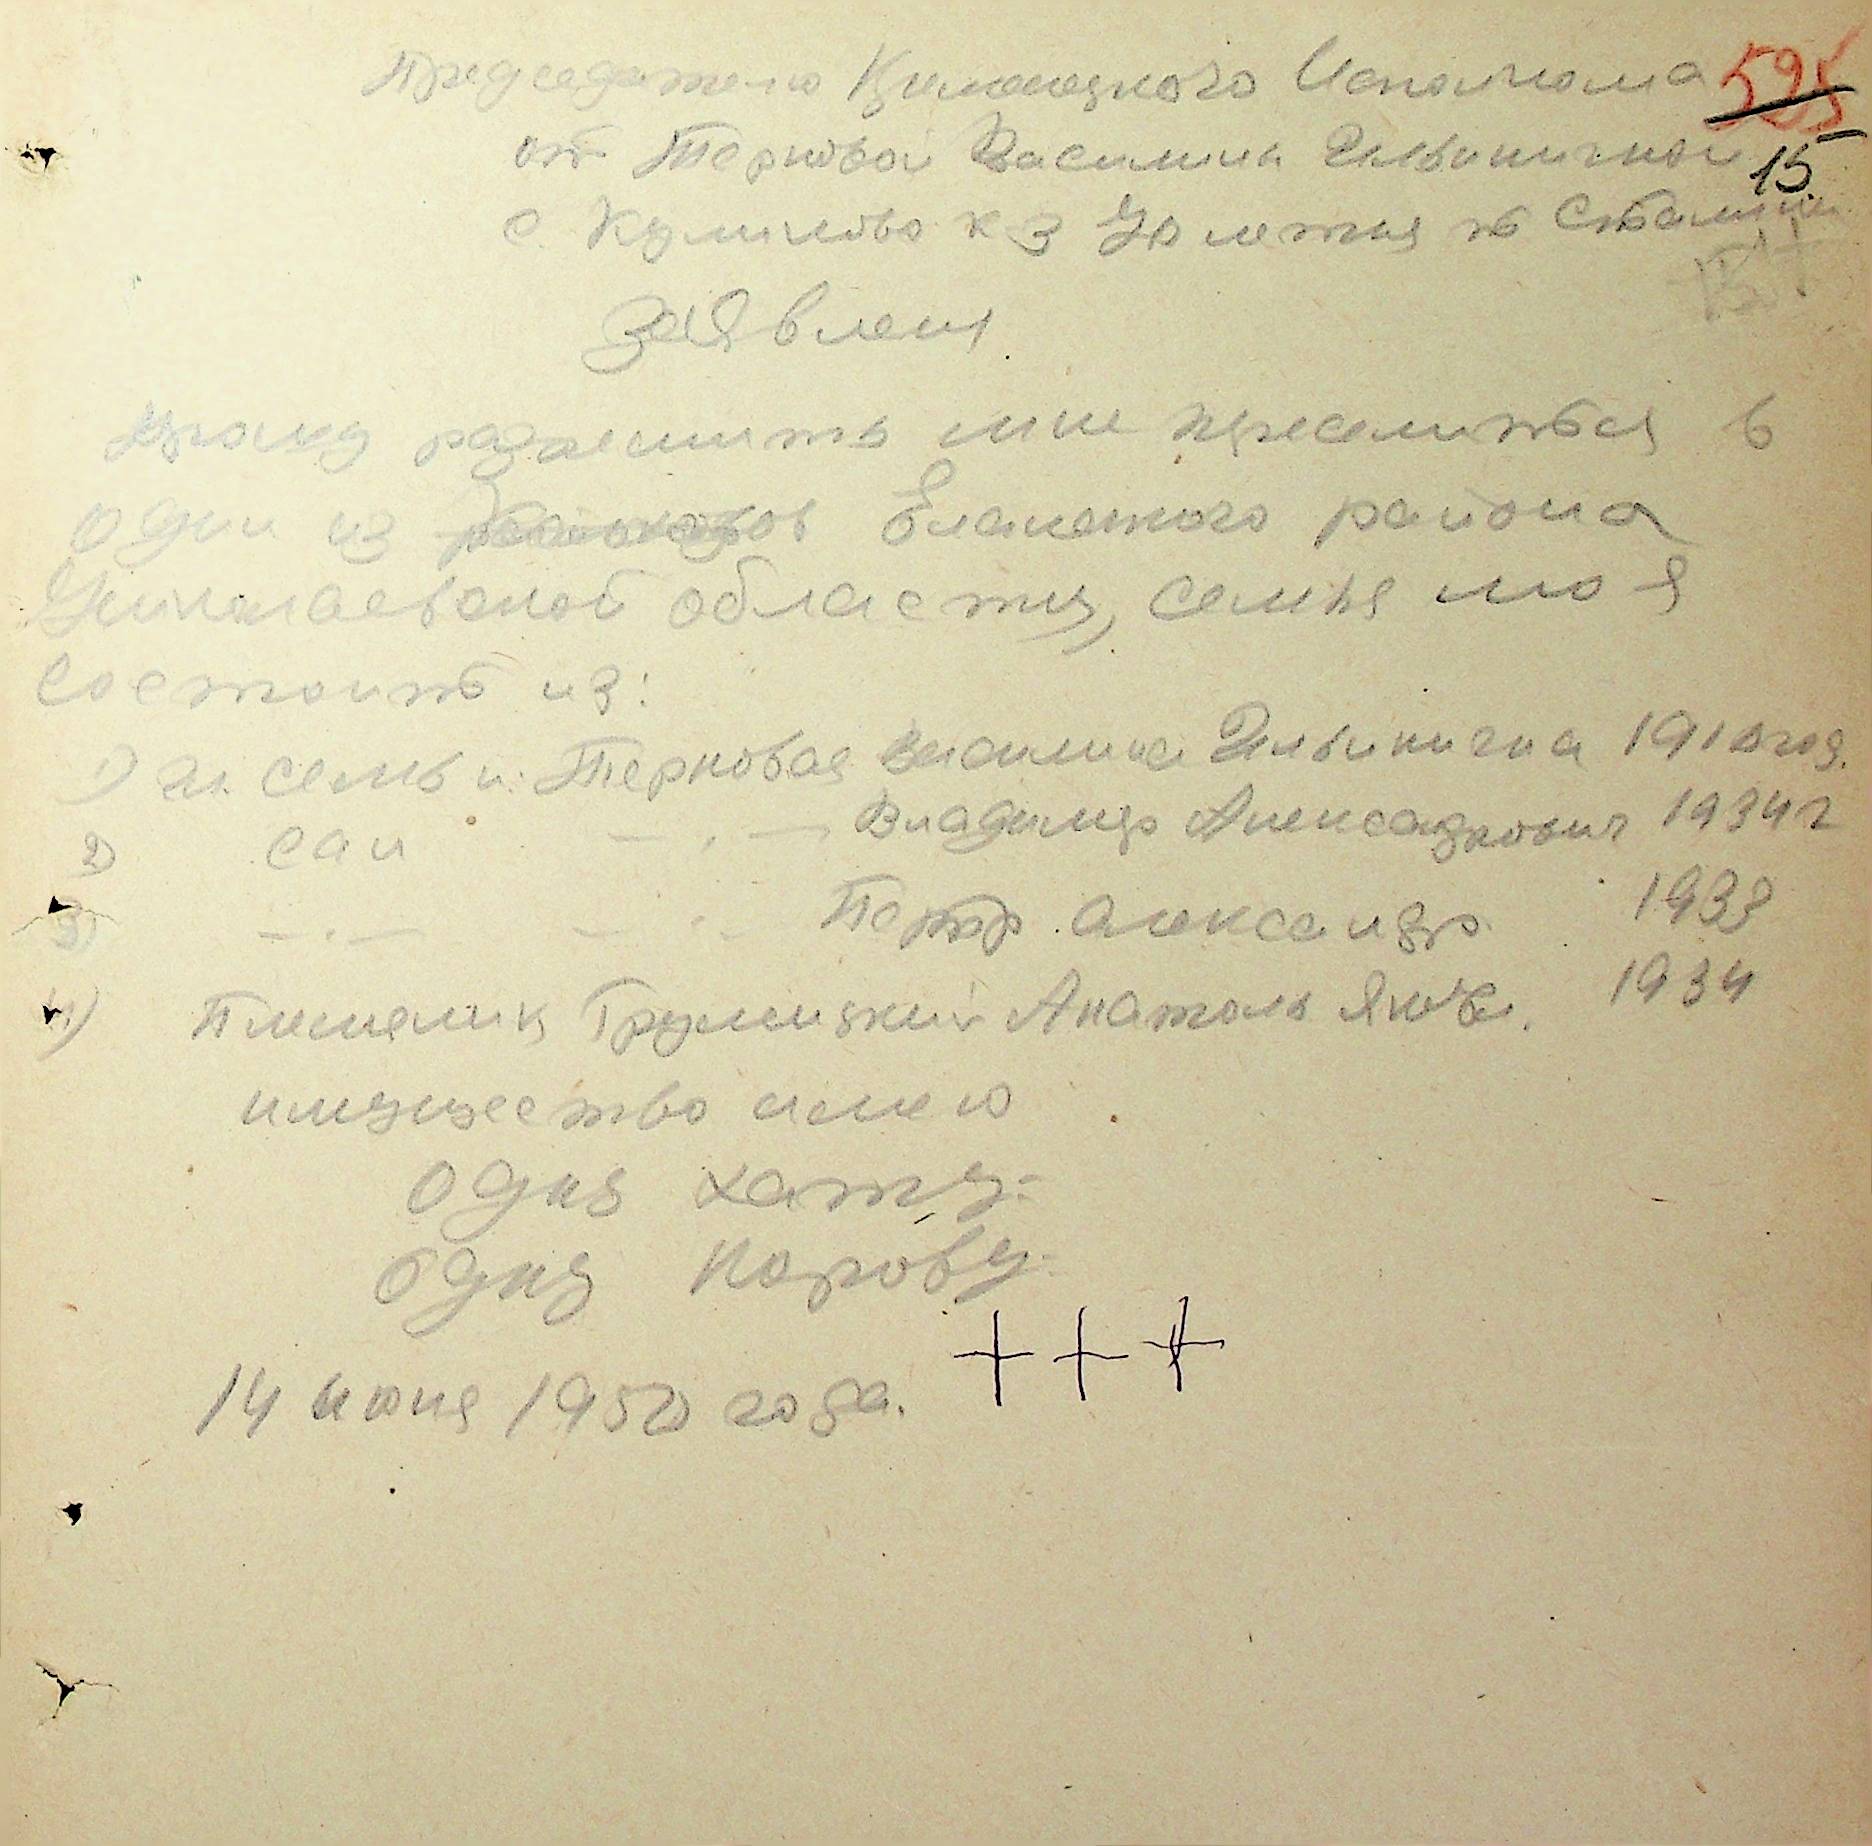 Председателю Исполкома
525
от Терновой Василины Ильиничной
15
с Куликово к з 70 летия т Сталин
Заявлени
Прошу разрешить мне преселиться в
один из Еланецкого района
Николаевской области, семья моя
состоит из:
1) Гл. семьи: Терновая Василина Ильинична 1910 год.
2) сан — . — Владимир Александрович 1934 г
3) — . — — . Петр Александр. 1933
4) Племелик Анатоль Яковл. 1934
имущество имею
одну хату.
одну корову.
+ + +
14 июня 1950 года.